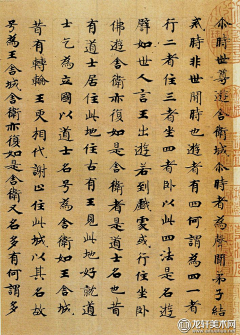 尒時世尊遊舍衛城尒時者為聲聞弟子結
戒時非世間時也遊者有四何謂為四一者
行二者住三者坐四者卧以此四法是名遊
譬如世人言王出遊若到戲處或行住坐卧
佛遊舍衛亦復如是舍衛者是道士名也昔
有道士居住此地往古有王見此地好就道
士乞為立國以道士名号為舍衛如王舍城
昔有轉輪王更相代謝止住此城以其名故
号為王舍城舍衛亦復如是舍衛又名多有何謂多
龙轩美术网